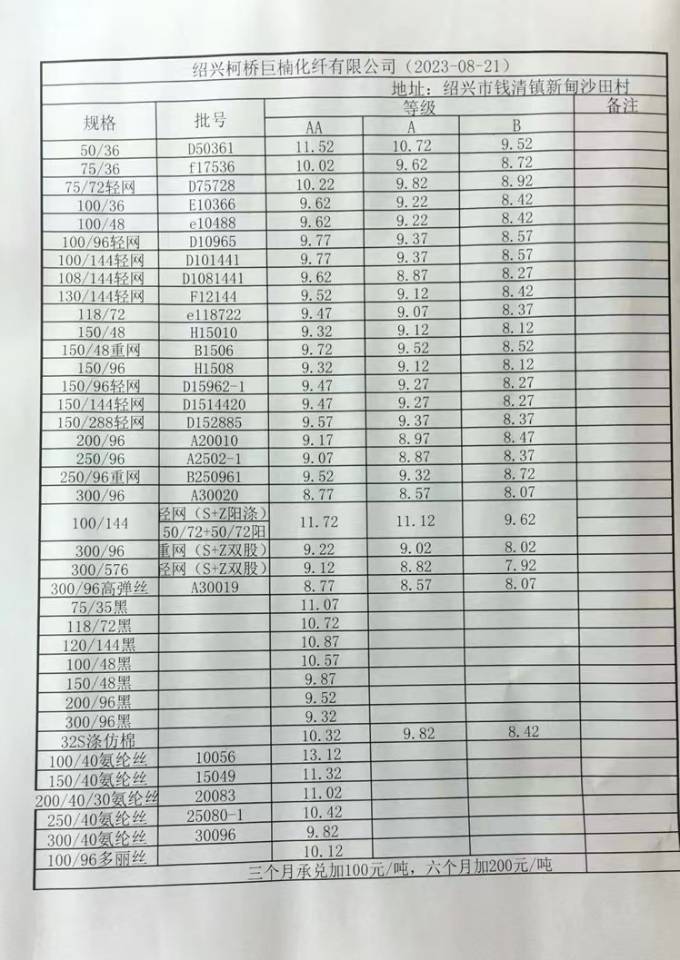 绍兴柯桥巨楠化纤有限公司（2023-08-21）
地址：绍兴市钱清镇新甸沙田村
规格 批号 等级 备注
AA A B
50/36 D50361 11.52 10.72 9.52
75/36 f17536 10.02 9.62 8.72
75/72轻网 D75728 10.22 9.82 8.92
100/36 E10366 9.62 9.22 8.42
100/48 e10488 9.62 9.22 8.42
100/96轻网 D10965 9.77 9.37 8.57
100/144轻网 D101441 9.77 9.37 8.57
108/144轻网 D1081441 9.62 8.87 8.27
130/144轻网 F12144 9.52 9.12 8.42
118/72 e118722 9.47 9.07 8.37
150/48 H15010 9.32 9.12 8.12
150/48重网 B1506 9.72 9.52 8.52
150/96 H1508 9.32 9.12 8.12
150/96轻网 D15962-1 9.47 9.27 8.27
150/144轻网 D1514420 9.47 9.27 8.27
150/288轻网 D152885 9.57 9.37 8.37
200/96 A20010 9.17 8.97 8.47
250/96 A2502-1 9.07 8.87 8.37
250/96重网 B250961 9.52 9.32 8.72
300/96 A30020 8.77 8.57 8.07
100/144 轻网（S+Z阳涤） 11.72 11.12 9.62
50/72+50/72阳
300/96 重网（S+Z双股） 9.22 9.02 8.02
300/576 轻网（S+Z双股） 9.12 8.82 7.92
300/96高弹丝 A30019 8.77 8.57 8.07
75/35黑 11.07
118/72黑 10.72
120/144黑 10.87
100/48黑 10.57
150/48黑 9.87
200/96黑 9.52
300/96黑 9.32
32S涤仿棉 10.32 9.82 8.42
100/40氨纶丝 10056 13.12
150/40氨纶丝 15049 11.32
200/40/30氨纶丝 20083 11.02
250/40氨纶丝 25080-1 10.42
300/40氨纶丝 30096 9.82
100/96多丽丝 10.12
三个月承兑加100元/吨，六个月加200元/吨